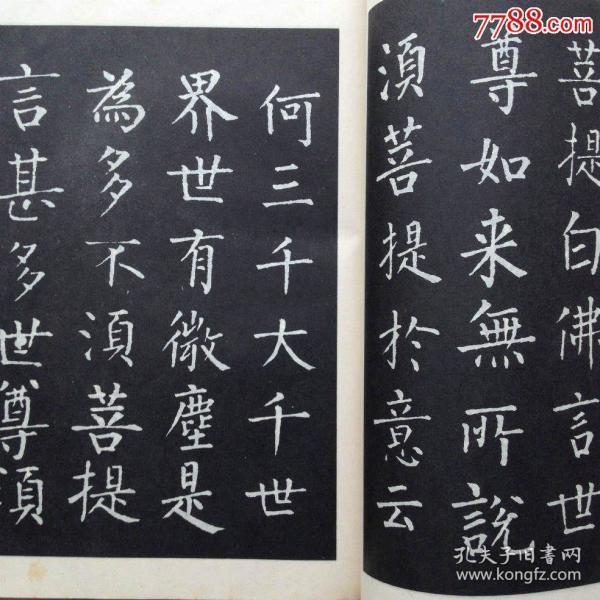 菩提白佛言世
尊如来無所說
湏菩提於意云
何三千大千世
界世有微塵是
為多不湏菩提
言甚多世尊湏
7788.com
孔夫子旧書网
www.kongfz.com